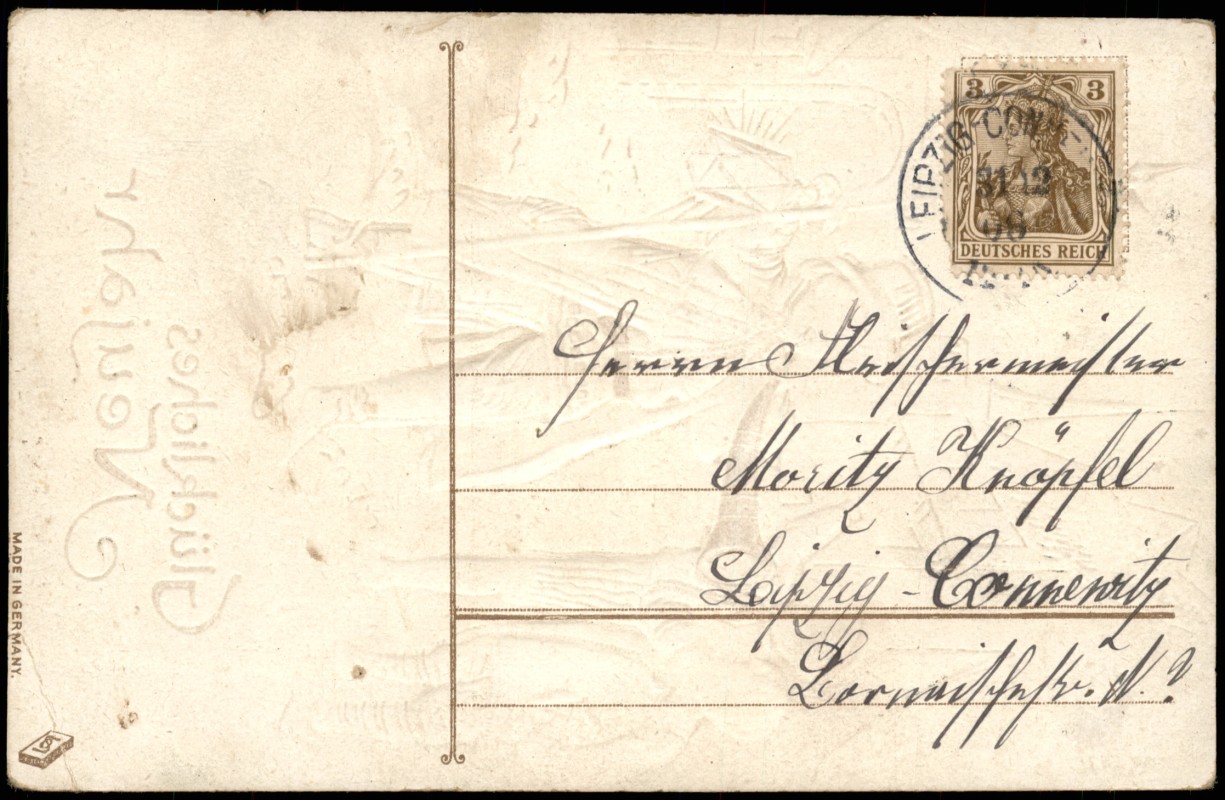 3 3
LEIPZIG-CONNE
31 12
06
DEUTSCHES REICH
Herrn Fleischermeister
Moritz Knöpfel
Leipzig-Connewitz
Bornaischestr. N. ?
Glückliches
Neujahr
MADE IN GERMANY.